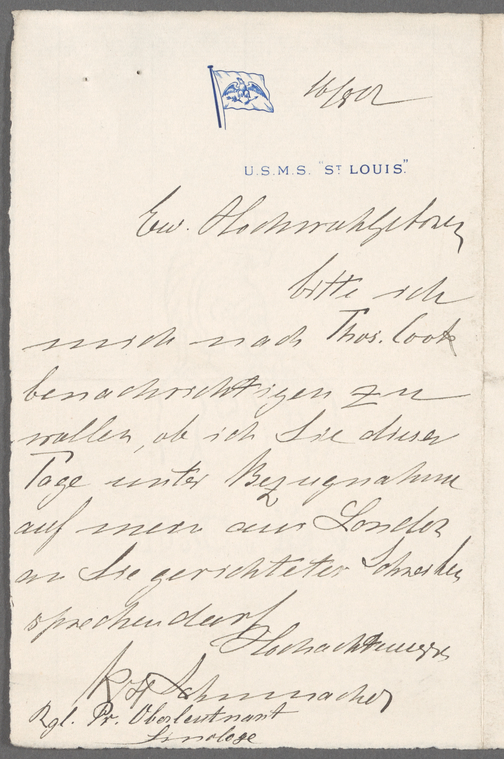 16/8 02
U.S.M.S. "ST LOUIS."
Ew. Hochwohlgeboren
bitte ich
mich nach Thos. Cook
benachrichtigen zu
wollen, ob ich Sie dieser
Tage unter Bezugnahme
auf mein aus London
an Sie gerichtetes Schreiben
sprechen darf
Hochachtungsv
Schumacher
Kgl. Pr. Oberleutnant
Sinologe